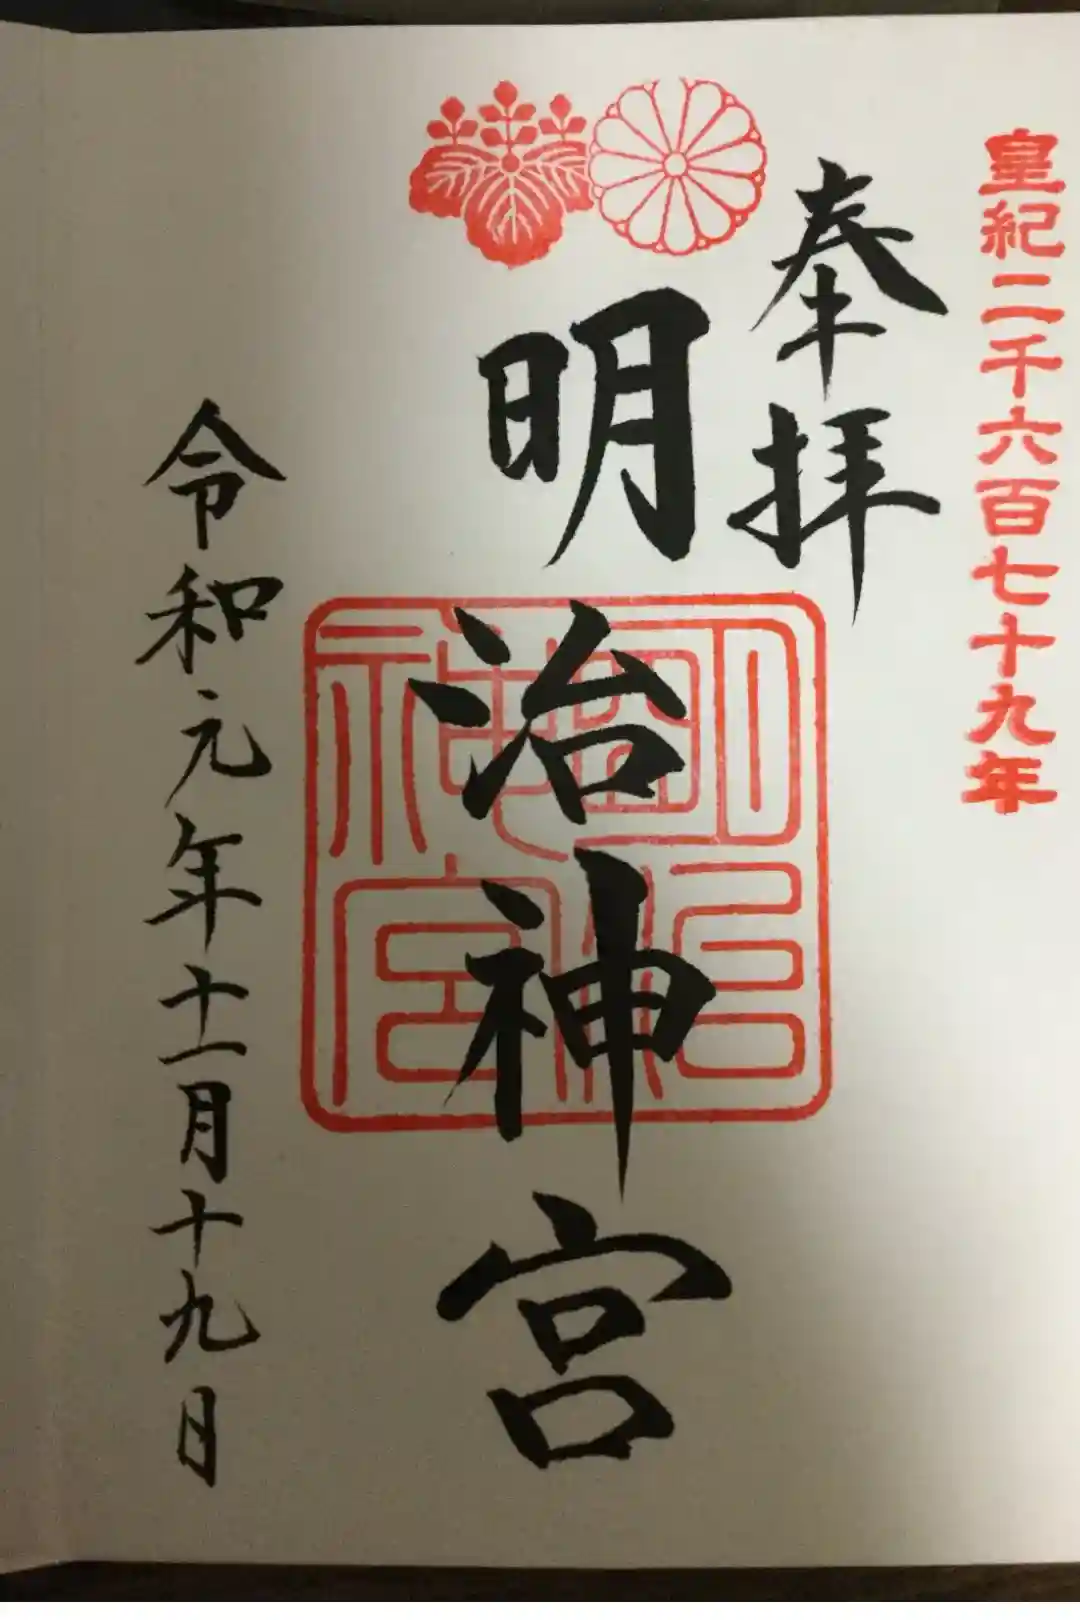 皇紀二千六百七十九年
奉拝
明治神宮
明治神宮
令和元年十一月十九日